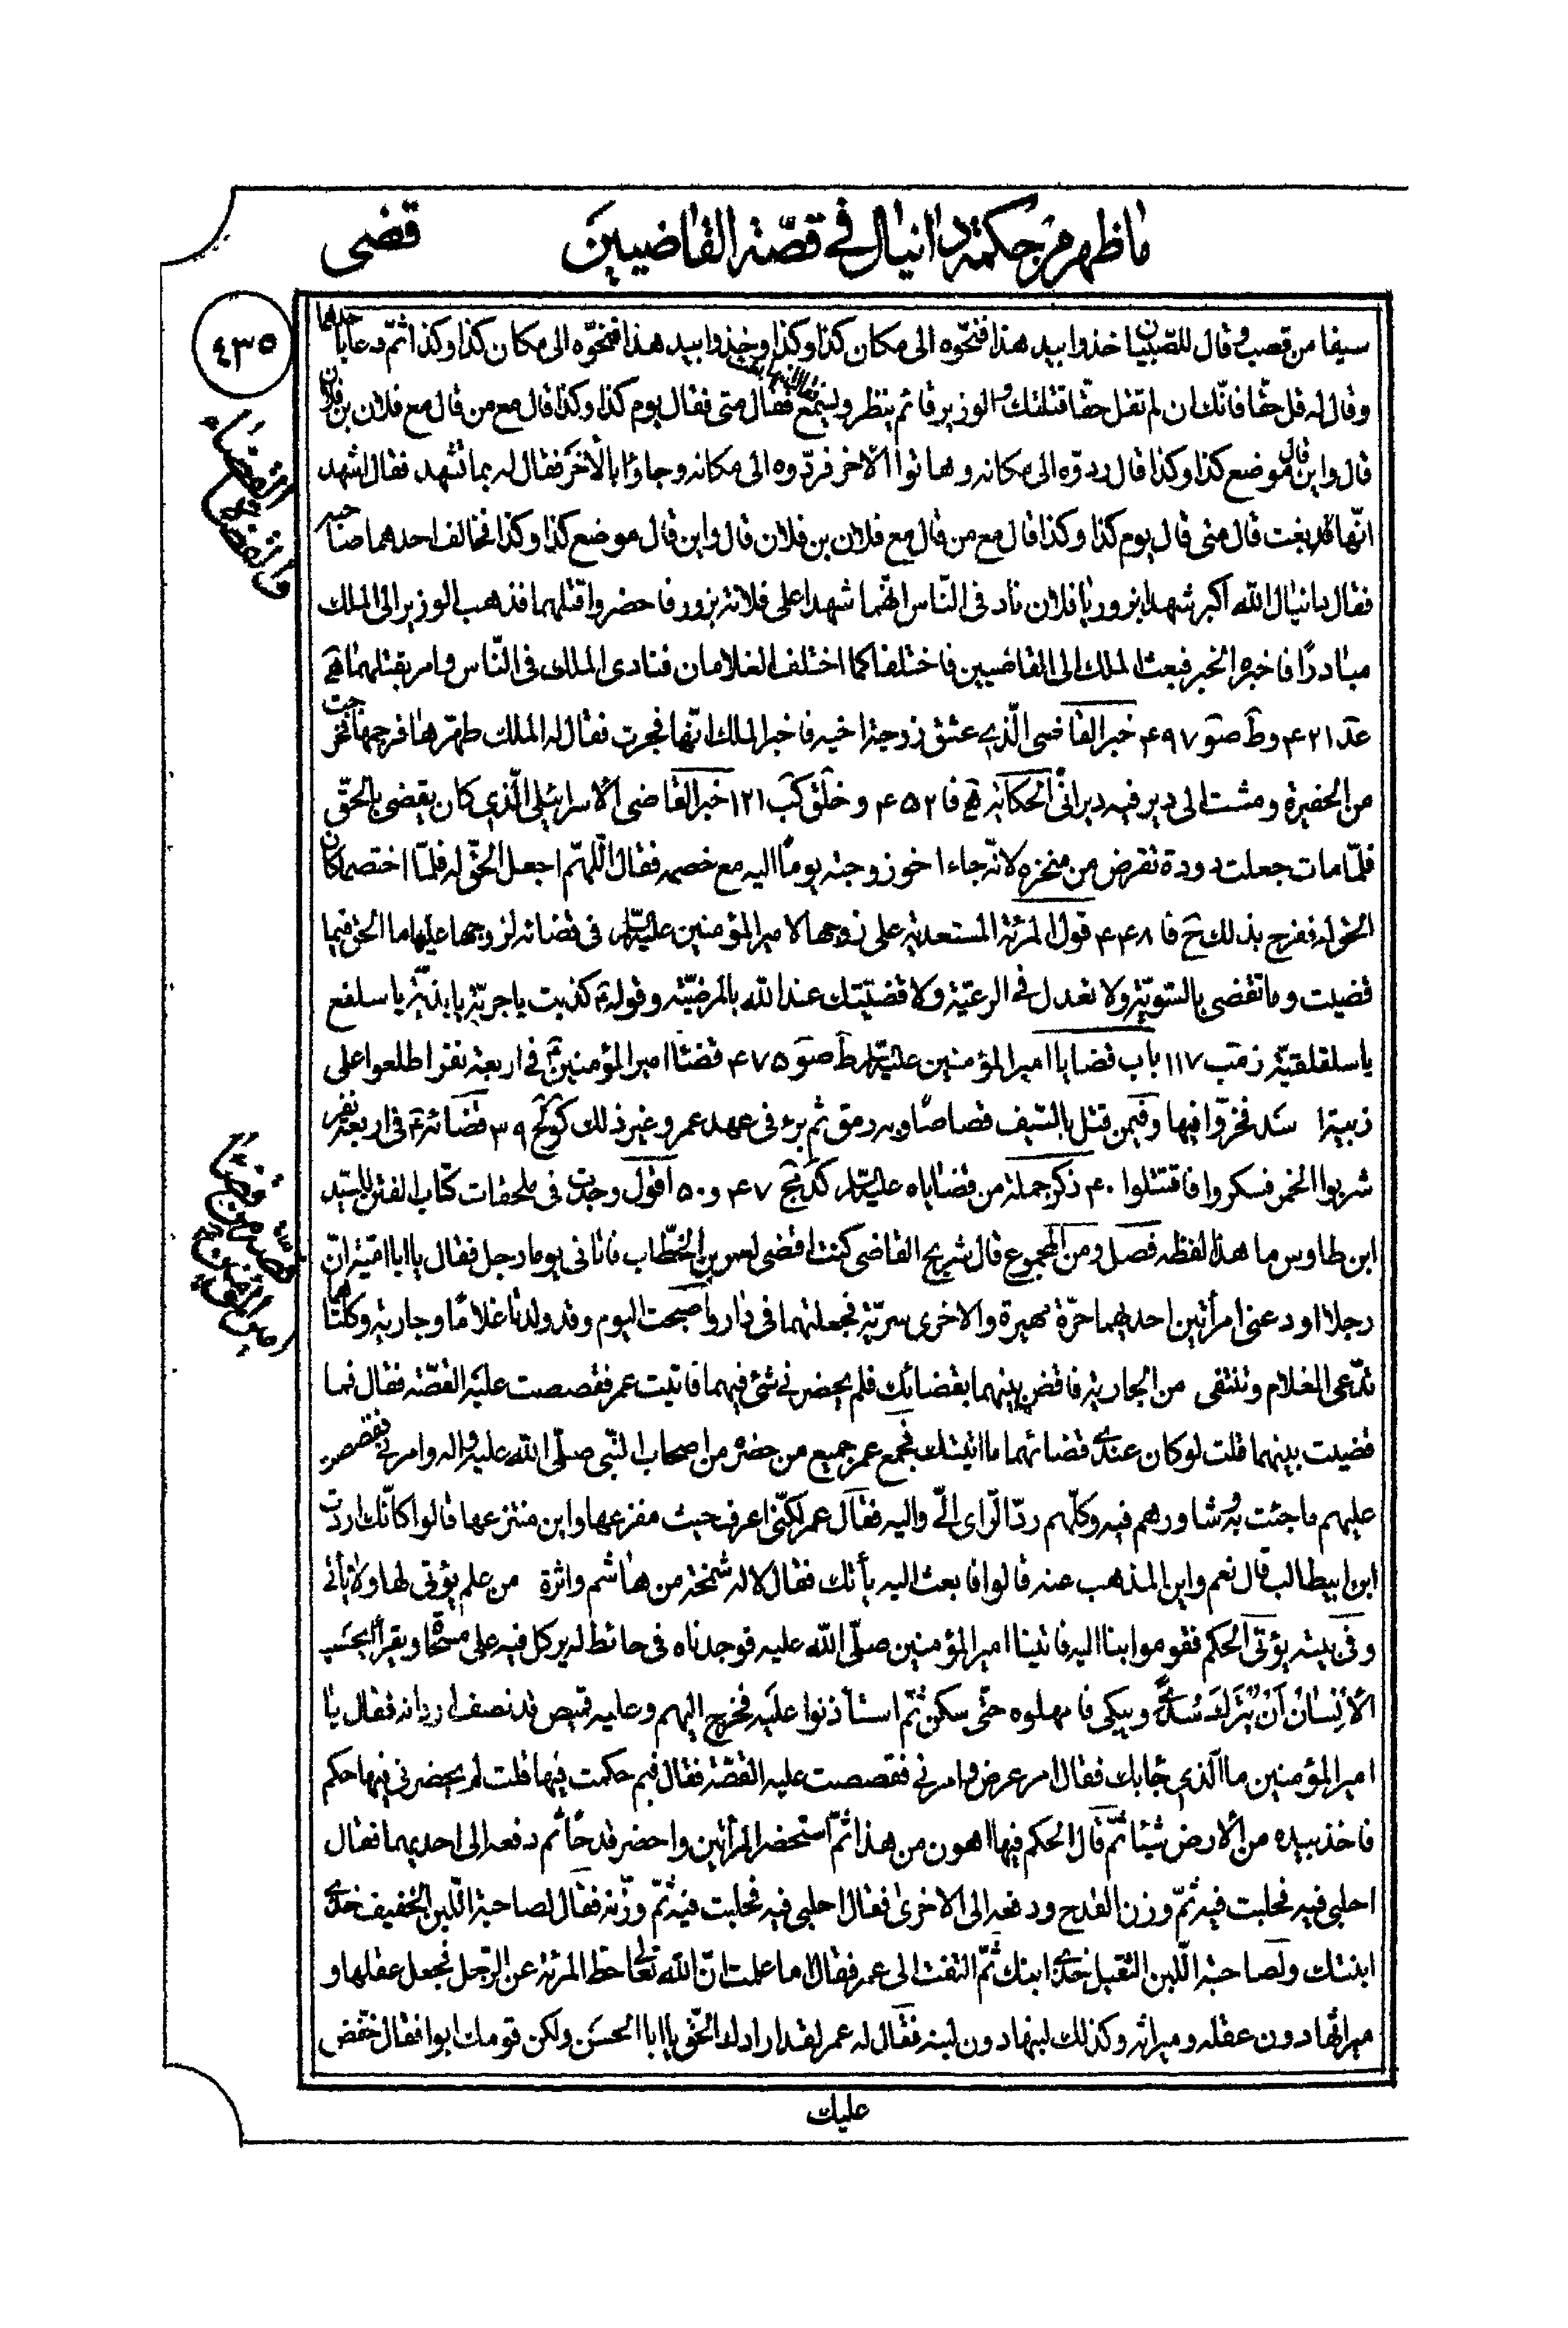 ما ظهر من حكمة دانيال في قصّة القاضيين
قضى
٤٣٥
سيفا من قصب وقال للصّبيان خذوا بيد هذا فنحّوه الى مكان كذا وكذا وخذوا بيد هذا فنحّوه الى مكان كذا وكذا ثمّ دعا باحدهما
وقال له قل حقّا فانّك ان لم تقل حقّا قتلتك والوزير قائم ينظر ويسمع فقال انها بغت فقال متى فقال يوم كذا وكذا قال مع من قال مع فلان بن فلان
قال واين قال موضع كذا وكذا قال ردوّه الى مكانه وهاتوا الآخر فردّوه الى مكانه وجاؤا بالآخر فقال له بما تشهد فقال اشهد
انّها قد بغت قال متى قال يوم كذا وكذا قال مع من قال مع فلان بن فلان قال واين قال موضع كذا وكذا فخالف احدهما صاحبه
فقال دانيال الله اكبر شهدا بزور يا فلان ناد فى النّاس انّهما شهدا على فلانة بزور فاحضروا قتلهما فذهب الوزير الى الملك
مبادرًا فاخبره الخبر فبعث الملك الى القاضيين فاختلفا كما اختلف الغلامان فنادى الملك فى النّاس وامر بقتلهما ه
عد ٤٢١ وط صو ٤٩٧ خبر القاضى الّذي عشق زوجة اخيه فاخبر الملك انّها فجرت فقال له الملك طهّرها فرجمها فخرجت
من الحفيرة ومشت الى دير فيه ديرانّى الحكاية ه فا ٤٥٢ وخلق كب ١٢١ خبر القاضى الأسرائيلى الّذي كان يقضى بالحقّ
فلمّا مات جعلت دودة تقرض من منخره لانّه جاء اخو زوجته يومًا اليه مع خصمه فقال اللّهمّ اجعل الحقّ له فلمّا اختصما كان
الحق له ففرح بذلك ح فا ٤٤٨ قول المرئة المستعدية على زوجها لامير المؤمنين عليه السّلام فى قضائه لزوجها عليها ما الحق فيما
قضيت وما تقضى بالسّويّة ولا تعدل فى الرعيّة ولا قضيّتك عند الله بالمرضيّة وقوله كذبت يا جريّة يا بذيّة يا سلفع
يا سلقلقيّة ز مب ١١٧ باب قضايا امير المؤمنين عليه السّلام ط صو ٤٧٥ قضاء امير المؤمنين في اربعة نفر اطلعوا على
زبية اسد فخرّوا فيها وفيمن قتل بالسّيف قصاصًا وبه رمق ثم برء فى عهد عمر وغير ذلك كو لج ٣٩ قضائه فى اربعة نفر
شربوا الخمر فسكروا فاقتتلوا ٤٠ ذكر جملة من قضاياه عليه السّلام كد مج ٤٧ و ٥٠ اقول وجدت فى ملحقات كتاب الفتن للسّيد
ابن طاوس ما هذا لفظه فصل ومن المجموع قال شريح القاضى كنت اقضى لعمر بن الخطّاب فاتانى يوما رجل فقال يا ابا اميّة انّ
رجلا اودعنى امرأتين احديهما حرّة مهيرة والاخرى سرّية فجعلتهما فى دار واصبحت اليوم وقد ولدتا غلامًا وجارية وكلتاهما
تدّعى الغلام وتنتفى من الجارية فاقض بينهما بقضائك فلم يحضرنى شئ فيهما فاتيت عمر فقصصت عليه القصّة فقال فما
قضيت بينهما قلت لو كان عندي قضائهما ما اتيتك فجمع عمر جميع من حضره من اصحاب النّبى صلّى الله عليه واله وامرنى فقصصت
عليهم ما جئت به وشاورهم فيه وكلّهم ردّ الرّاى الىّ واليه فقال عمر لكنّى اعرف حيث مفزعها واين منتزعها قالوا كانّك اردت
ابن ابيطالب قال نعم واين المذهب عنه قالوا فابعث اليه يأتك فقال لا له شمخة من هاشم واثرة من علم يؤتى لها ولا يأتى
وفى بيته يؤتى الحكم فقوموا بنا اليه فاتينا امير المؤمنين صلّى الله عليه فوجدناه فى حائط له يركل فيه على مسحاة ويقرأ ايحسب
الأنسان أن يترك سدى ويبكى فامهلوه حتّى سكن ثمّ استأذنوا عليه فخرج اليهم وعليه قميص قد نصف اردانه فقال يا
امير المؤمنين ما الّذي جاء بك فقال امر عرض وامرنى فقصصت عليه القصّة فقال فبم حكمت فيها قلت لم يحضرنى فيها حكم
فاخذ بيده من الأرض شيئا ثمّ قال الحكم فيها اهون من هذا ثمّ استحضر المرأتين واحضر قدحًا ثم دفعه الى احديهما فقال
احلبى فيه فحلبت فيه ثمّ وزن القدح ودفعه الى الاخرى فقال احلبى فيه فحلبت فيه ثمّ وزّنه فقال لصاحبة اللّبن الخفيف خذي
ابنتك ولصاحبة اللّبن الثقيل خذي ابنك ثمّ التفت الى عمر فقال اما علمت انّ الله تعالى حطّ المرئة عن الرّجل فجعل عقلها و
ميراثها دون عقله وميراثه وكذلك لبنها دون لبنه فقال له عمر لقد ارادك الحقّ يا ابا الحسن ولكن قومك ابوا فقال خفّض
عليك